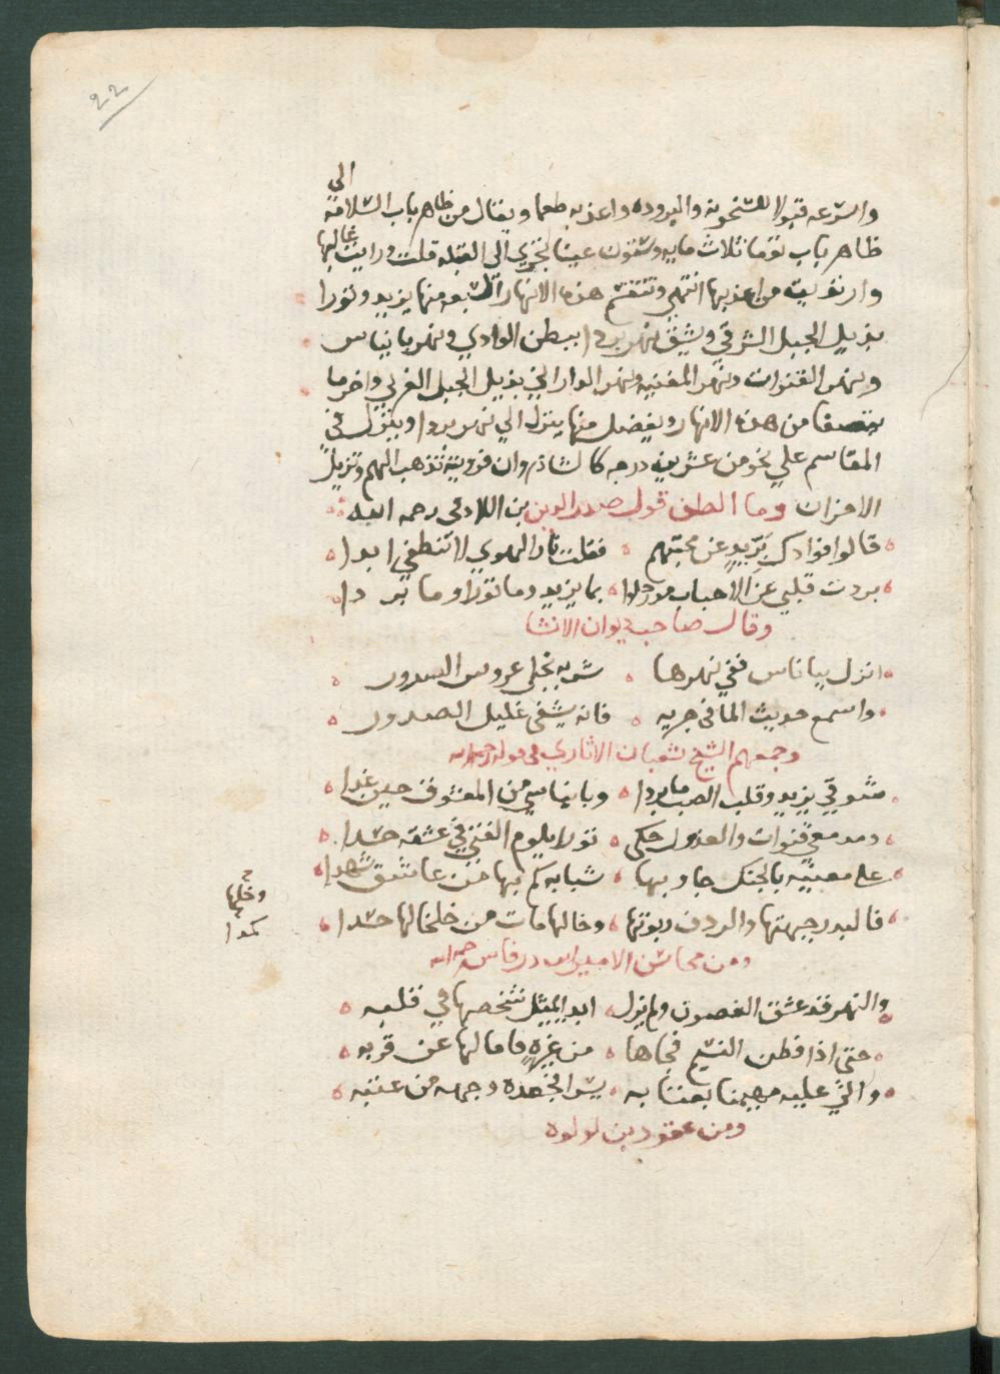 22
الي
واسرعه قبولا للسخونه والبروده واعذبه طعما ويقال من ظاهر باب السلامة
ظاهر باب توما ثلاث مايه وستون عينا تجري الى القبله قلت ورايت غالبها
وارتويت من اعذبها انتهي وتنقسم هذه الانهار السبعه منها يزيد وثورا
بذيل الجبل الشرقي ويشق نهر بردا ببطن الوادي ونهر بانياس
ونهر القنوات ونهر المغنيه ونهر الداراني بذيل الجبل الغربي واخرما
من هذه الانهار ويفضل منها ينزل الي نهر بردا وينزل في
المقاسم علي نحو من عشرين درجه كالشاذروان فرويته تذهب الهم وتزيل
الاحزان وما الطف قول صدر الدين بن اللادمي رحمه الله
قالوا فوادك تبريد عن محبتهم فقلت نار الهوي لا تنطفي ابدا
بردت قلبي عن الاحباب بما يزيد وما ثورا وما بردا
وقال صاحب ديوان الانشا
انزل ببانياس ففي نهرها شربه تجلي عروس السرور
واسمع حديث الما في جريه فانه يشفي غليل الصدور
وجمعهم الشيخ شعبان الاثاري في قوله رحمه الله
شوقي يزيد وقلب الصب ما بردا وبانياسي من المعشوق حين غدا
دمعي قنوات والعذول حكي ثورا يلوم الفتي في عشقه حسدا
علي مغنيه بالجنك جاوبها شبابه كم بها من عاشق شهدا
فالبدر جبهتها والردف ربوتها وخالها مات من خلخالها حسدا
وخلها
كمدا
ومن محاسن الامير
والنهر قد عشق الغصون ولم يزل ابدا يمثل شخصها في قلبه
حتي اذا فطن النسيم فجاها من غيره فامالها عن قربه
واتي عليه مهيمنا بعتابه يسرا وجهه من عتبه
ومن عقود بن لولوه